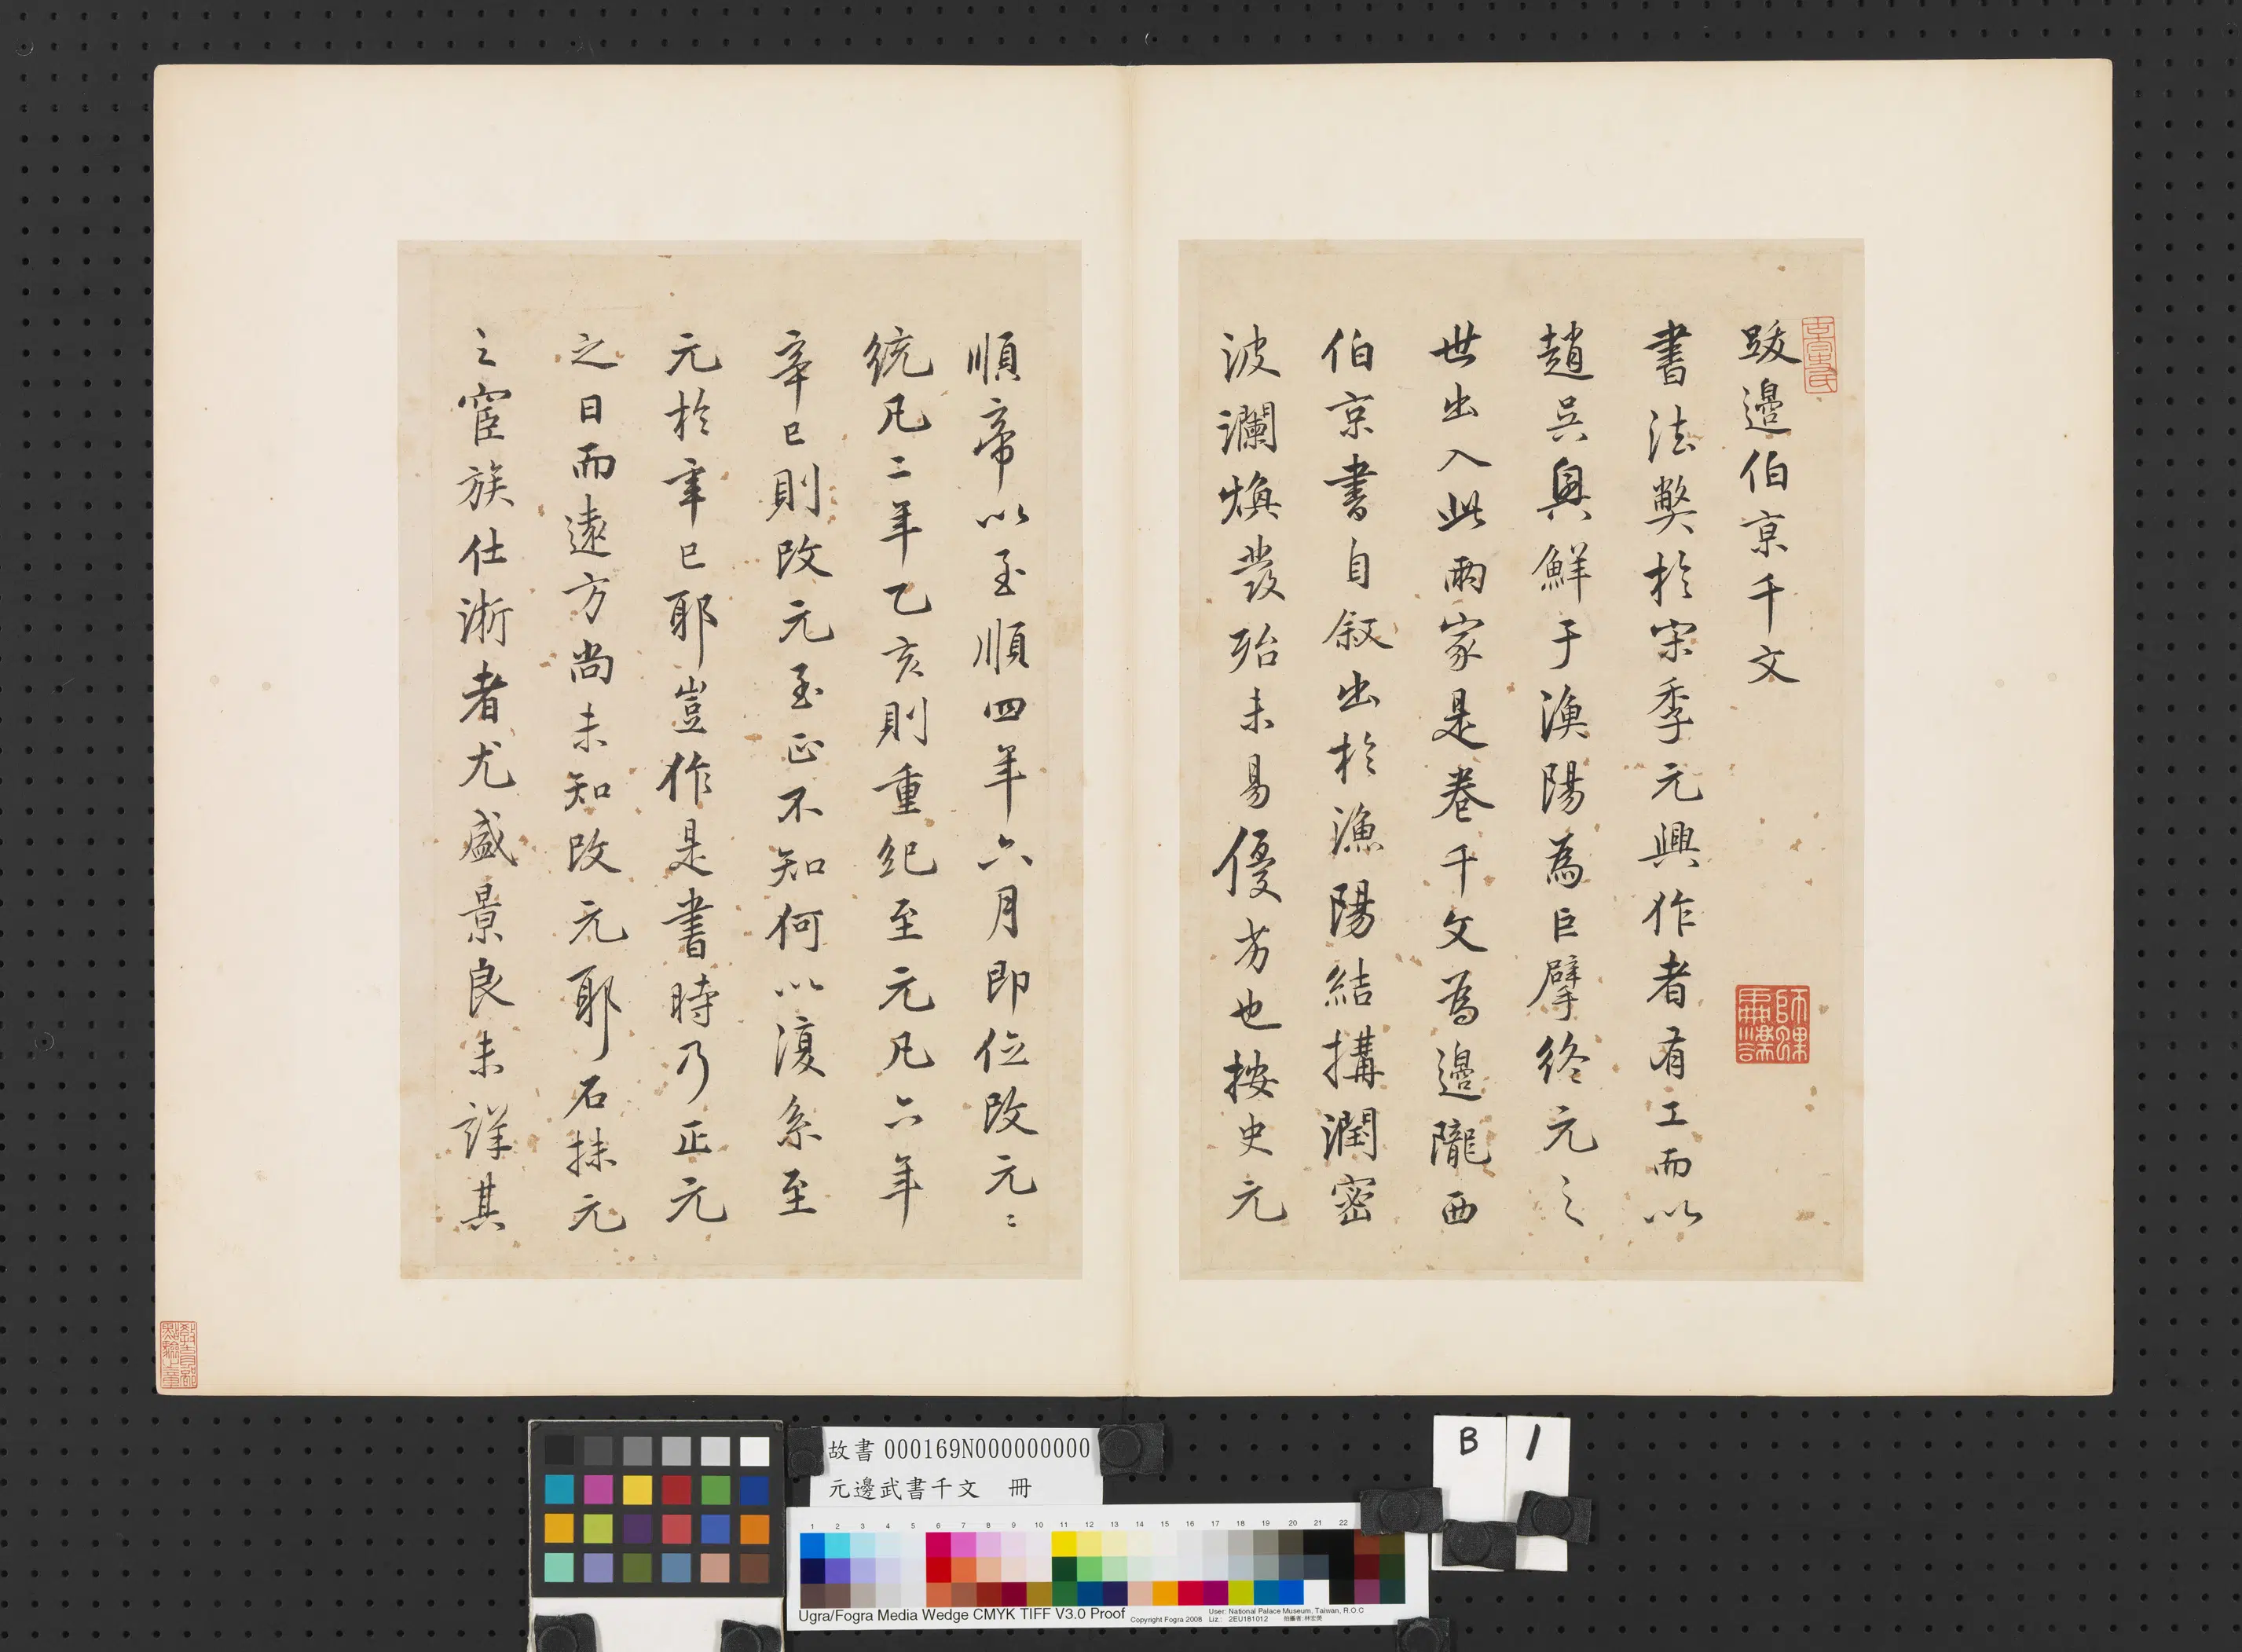 跋邉伯京千文
書法弊於宋季元興作者有工而以
趙吳興鮮于漁陽為巨擘終元之
世出入此兩家是卷千文為邉隴西
伯京書自叙出於漁陽結搆潤密
波瀾煥發殆未易優劣也按史元
順帝以至順四年六月即位改元〻
統凡二年乙亥則重紀至元凡六年
辛巳則改元至正不知何以復系至
元於辛巳耶豈作是書時乃正元
之日而遠方尚未知改元耶石抹元
之宦族仕浙者尤盛景良未詳其
故書000169N000000000
元邊武書千文 冊
B 1
1 2 3 4 5 6 7 8 9 10 11 12 13 14 15 16 17 18 19 20 21 22
Ugra/Fogra Media Wedge CMYK TIFF V3.0 Proof
Copyright Fogra 2008
User: National Palace Museum, Taiwan, R.O.C
Liz.: 2EU181012